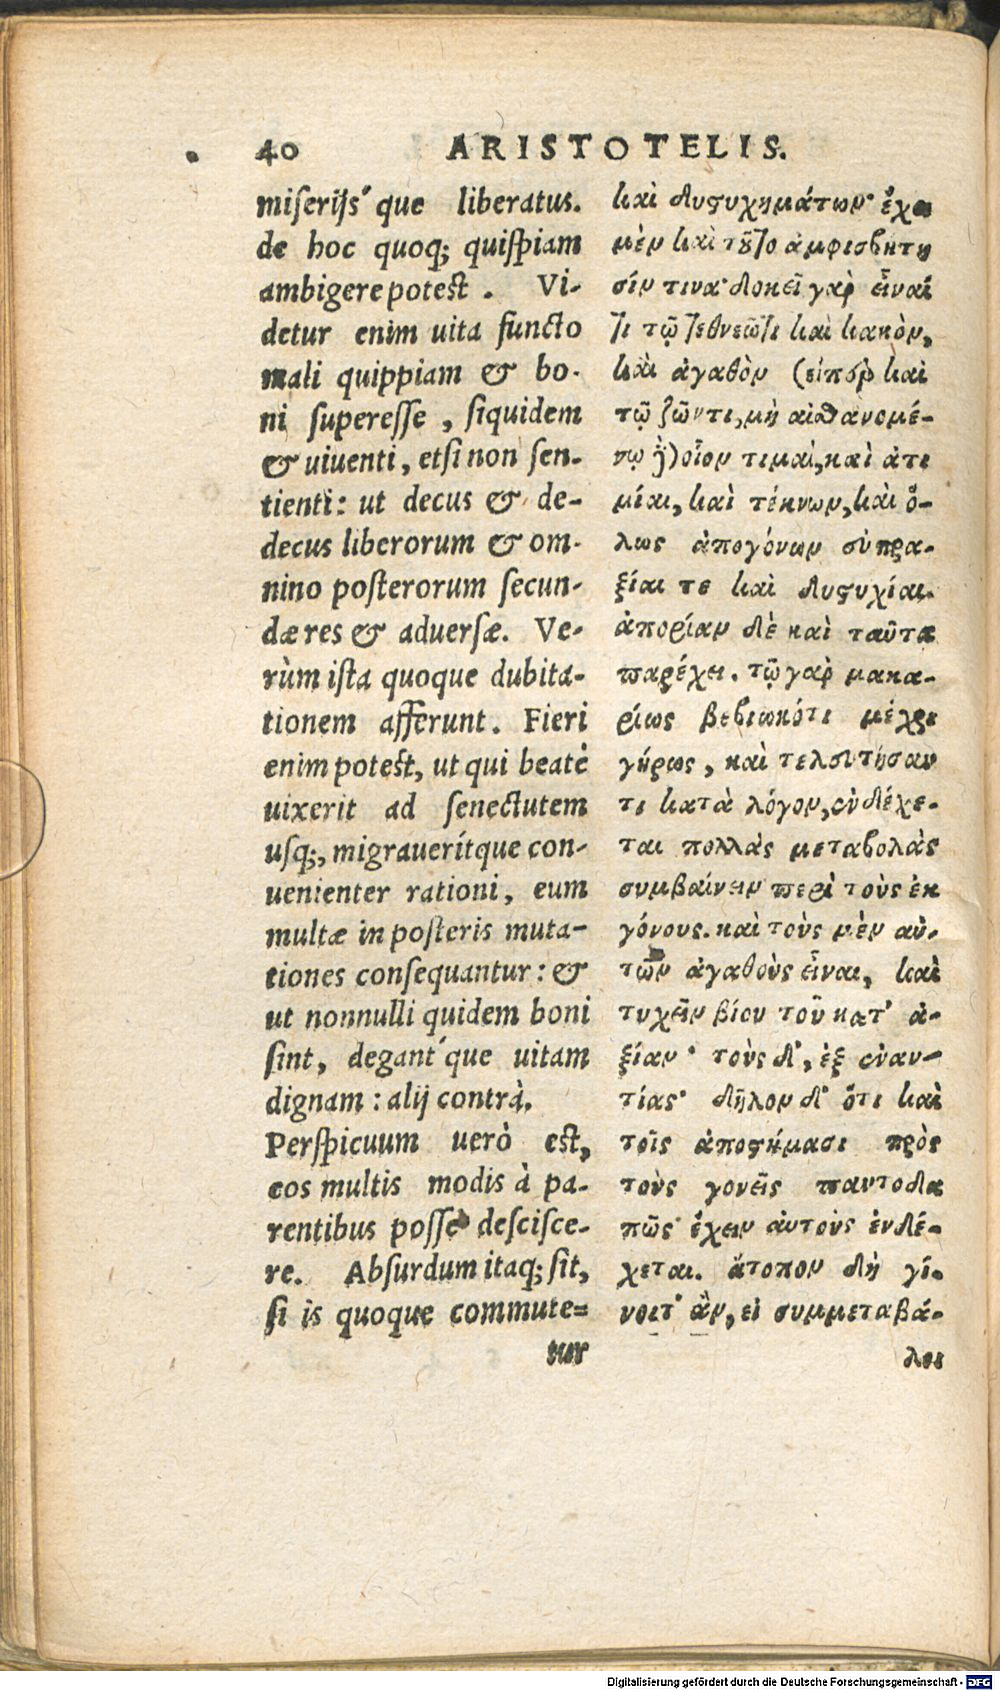 40 ARISTOTELIS.
miserijs´que liberatus.
de hoc quoq; quispiam
ambigere potest. Vi-
detur enim uita functo
mali quippiam & bo-
ni superesse, siquidem
& uiuenti, etsi non sen-
tienti: ut decus & de-
decus liberorum & om-
nino posterorum secun-
dæ res & aduersæ. Ve-
rùm ista quoque dubita-
tionem afferunt. Fieri
enim potest, ut qui beatè
uixerit ad senectutem
usq;, migrauerítque con-
uenienter rationi, eum
multæ in posteris muta-
tiones consequantur: &
ut nonnulli quidem boni
sint, degant´que uitam
dignam: alij contrà.
Perspicuum uerò est,
eos multis modis à pa-
rentibus posse descisce-
re. Absurdum itaq; sit,
si is quoque commute=
tur
καὶ δυστυχημάτων· ἔχει
μὲν καὶ τοῦτο ἀμφισβητη
σίν τινα· δοκεῖ γὰρ εἶναί
τι τῷ τεθνεῶτι καὶ κακὸν,
καὶ ἀγαθὸν (εἴπερ καὶ
τῷ ζῶντι, μὴ αἰσθανομέ-
νῳ δὲ) οἷον τιμαὶ, καὶ ἀτι
μίαι, καὶ τέκνων, καὶ ὅ-
λως ἀπογόνων εὐπρα-
ξίαι τε καὶ δυστυχίαι.
ἀπορίαν δὲ καὶ ταῦτα
παρέχει. τῷ γὰρ μακα-
ρίως βεβιωκότι μέχρι
γήρως, καὶ τελευτήσαν
τι κατὰ λόγον, ἐνδέχε-
ται πολλὰς μεταβολὰς
συμβαίνειν περὶ τοὺς ἐκ
γόνους. καὶ τοὺς μὲν αὐ-
τῶν ἀγαθοὺς εἶναι, καὶ
τυχεῖν βίου τοῦ κατ' ἀ-
ξίαν· τοὺς δ', ἐξ ἐναν-
τίας· δῆλον δ' ὅτι καὶ
τοῖς ἀποστήμασι πρὸς
τοὺς γονεῖς παντοδα
πῶς ἔχειν αὐτοὺς ἐνδέ-
χεται. ἄτοπον δὴ γί-
νοιτ' ἂν, εἰ συμμεταβά-
λοι
Digitalisierung gefördert durch die Deutsche Forschungsgemeinschaft - DFG